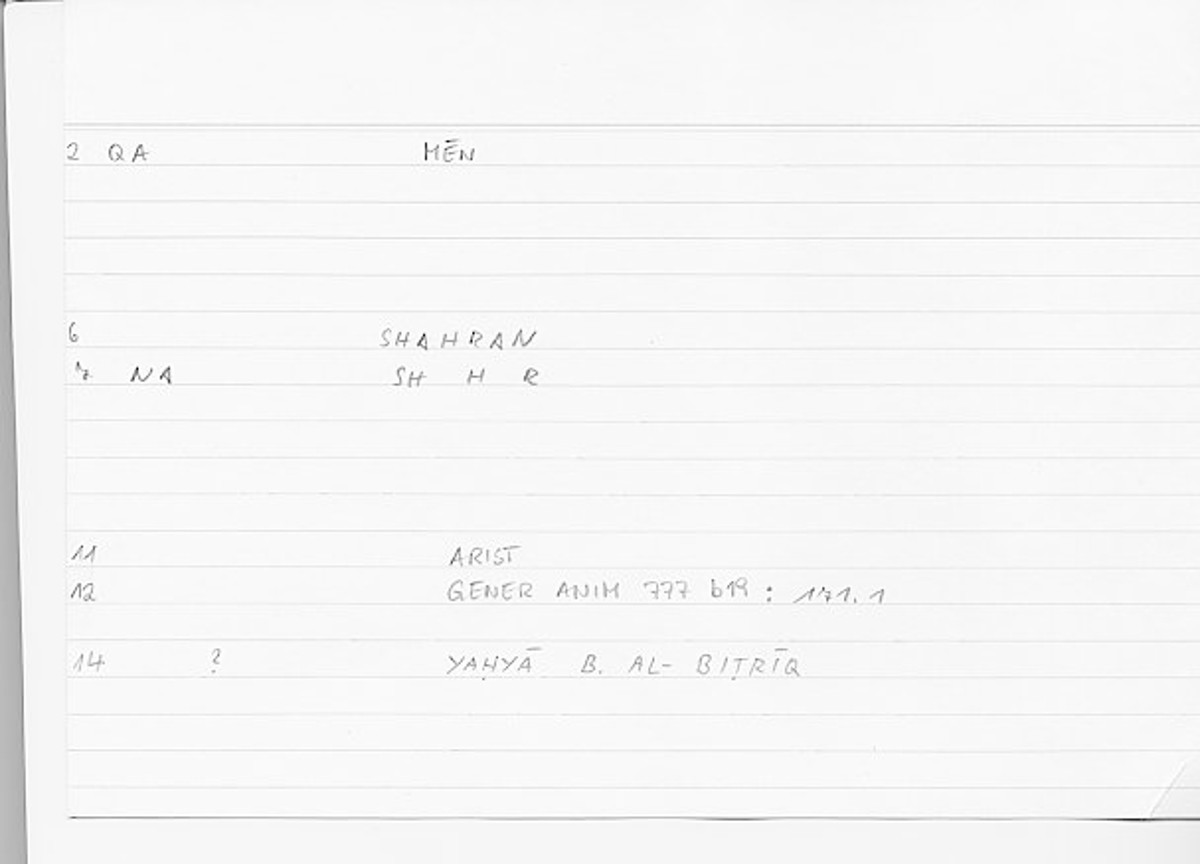 2 QA MĒN
6 SHAHRAN
7 NA SH H R
11 ARIST
12 GENER ANIM 777 b19 : 171.1
14 ? YAḤYĀ B. AL- BIṬRĪQ